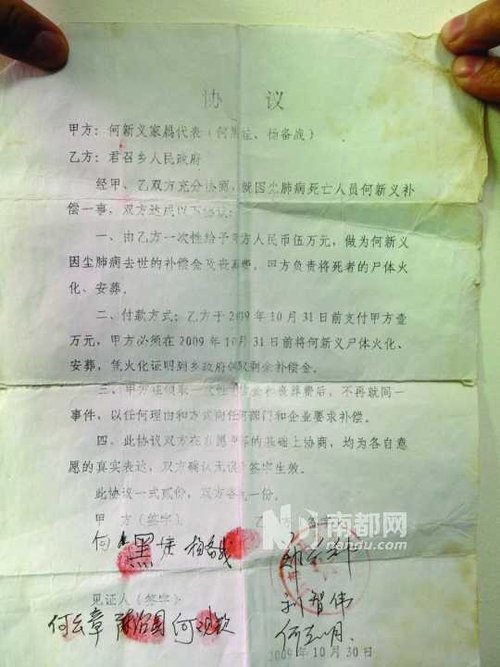 协 议
甲方：何新义家属代表（何黑、杨备战）
乙方：君召乡人民政府
经甲、乙双方充分协商，就因尘肺病死亡人员何新义补
偿一事，双方达成以下协议：
一、由乙方一次性给予甲方人民币伍万元，做为何新义
因尘肺病去世的补偿金及丧葬费。甲方负责将死者的尸体火
化、安葬。
二、付款方式：乙方于2009年10月31日前支付甲方壹
万元，甲方必须在2009年10月31日前将何新义尸体火化、
安葬，凭火化证明到乡政府领取剩余补偿金。
三、甲方在领取一次性补偿金和丧葬费后，不再就同一
事件，以任何理由和方式向任何部门和企业要求补偿。
四、此协议双方在自愿平等的基础上协商，均为各自意
愿的真实表达，双方确认无误后签字生效。
此协议一式贰份，双方各执一份。
甲 方（签字） 乙 方
何黑 杨备战
南都网
nandu.com
刘智伟
见证人（签字）
何云章 何现钦
2009年10月30日